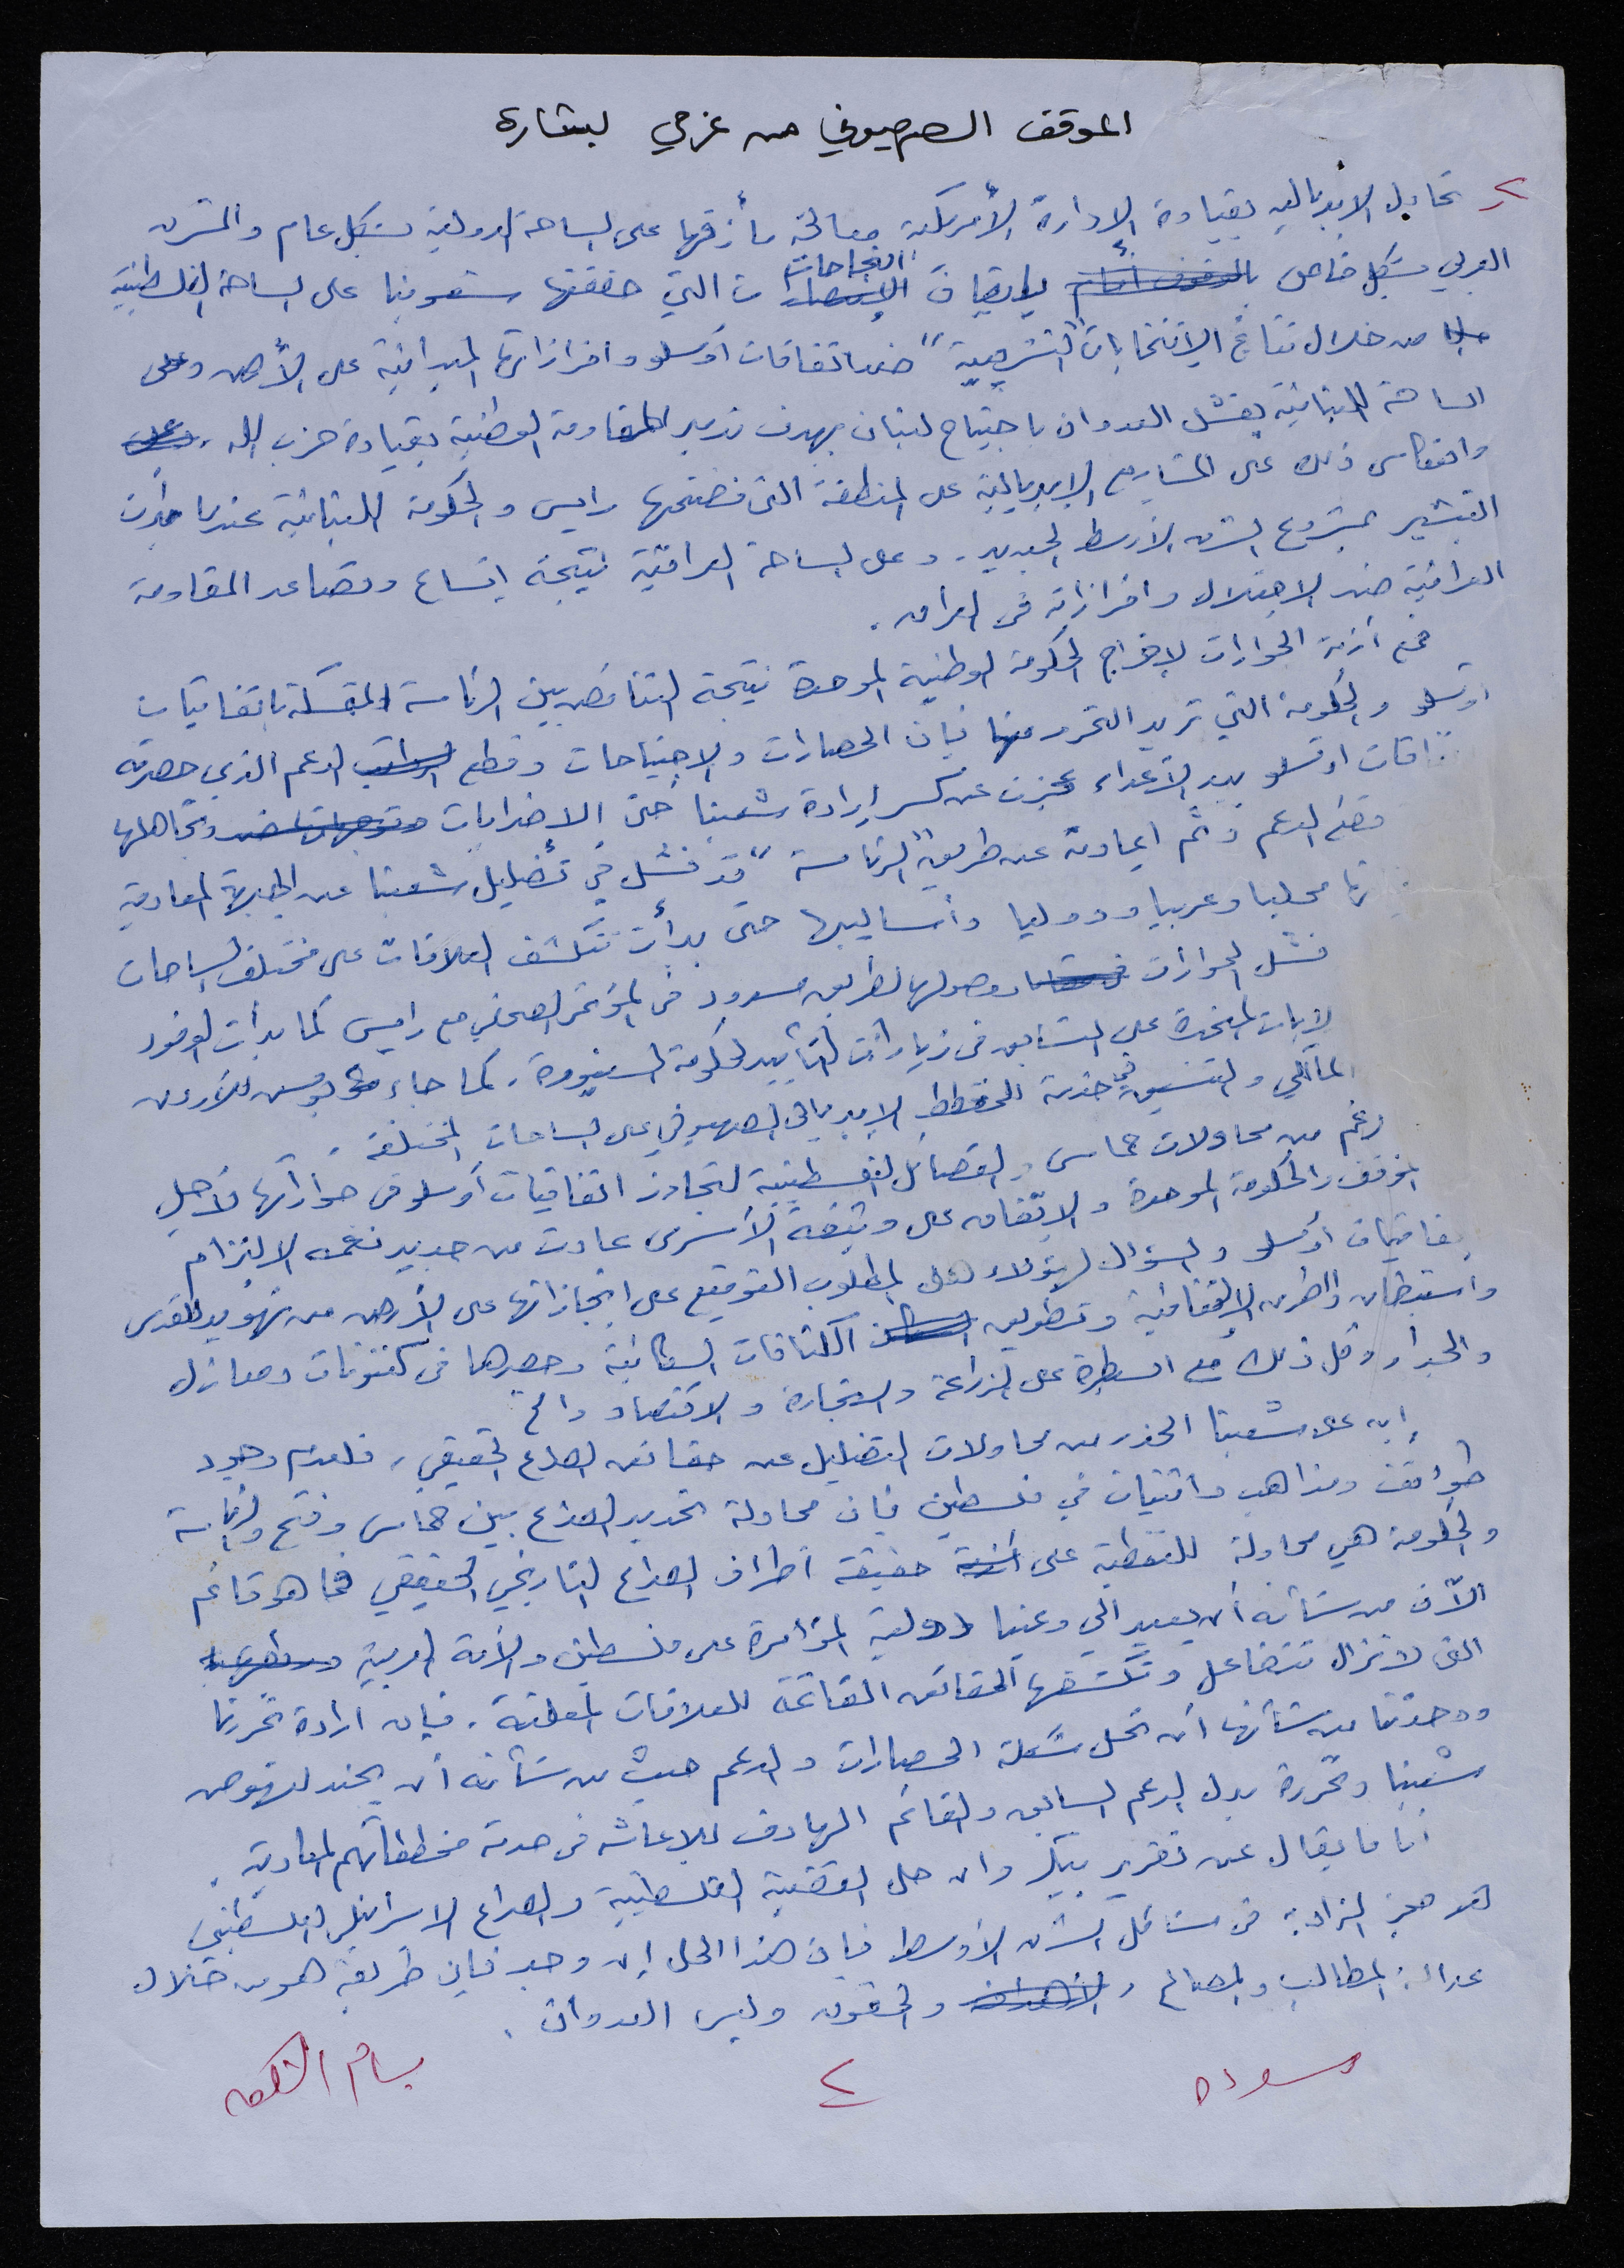 الموقف الصهيوني من عزمي بشارة
تحاول الامبريالية بقيادة الإدارة الأمريكية معالجة مأزقها على الساحة الدولية بشكل عام والمشرق
العربي بشكل خاص بالوقوف أمام لإيقاف النجاحات التي حققتها شعوبنا على الساحة الفلسطينية
من خلال نتائج الانتخابات "التشريعية" ضد اتفاقات أوسلو وافرازاتها الميدانية على الأرض وعلى
الساحة اللبنانية بفشل العدوان باجتياح لبنان بهدف تدمير المقاومة الوطنية بقيادة حزب الله، وعلى
وانعكاس ذلك على المشاريع الامبريالية على المنطقة التي فضحتها رايس والحكومة اللبنانية عندما بدأت
التبشير بمشروع الشرق الأوسط الجديد. وعلى الساحة العراقية نتيجة اتساع وتصاعد المقاومة
العراقية ضد الاحتلال وافرازاته في العراق.
فمع أزمة الحوارات لإخراج الحكومة الوطنية الموحدة نتيجة التناقض بين الرئاسة المتمسكة باتفاقيات
أوسلو والحكومة التي تريد التحرر منها فإن الحصارات والاجتياحات وقطع الرواتب الدعم الذي حصرته
اقات أوسلو بيد الأعداء عجزت عن كسر إرادة شعبنا حتى الاضرابات وتجاهلها
قطع الدعم وثم اعادته عن طريق "الرئاسة" قد فشل في تضليل شعبنا عن الجبهة المعادية
تها محليا وعربيا ودوليا وأساليبها حتى بدأت تتكشف العلاقات على مختلف الساحات
فشل الحوارات ووصولها لطريق مسدود في المؤتمر الصحفي مع رايس كما بدأت الوفود
لايات المتحدة على التسابق في زيارات التأييد لحكومة السنيورة. كما جاء بوش للأردن
المالكي والتنسيق في خدمة المخطط الامبريالي الصهيوني على الساحات المختلفة.
رغم من محاولات حماس والفصائل الفلسطينية لتجاوز اتفاقيات أوسلو في حواراتها لأجل
الموقف والحكومة الموحدة والاتفاق على وثيقة الأسرى عادت من جديد نغمة الالتزام
بفاقيات أوسلو والسؤال لهؤلاء هل المطلوب التوقيع على انجازاتها على الأرض من تهويد للقدس
واستيطان والطرق الالتفافية وتطويق الكثافات السكانية وحصرها في كنتونات ومعازل
والجدار وكل ذلك مع السيطرة على الزراعة والتجارة والاقتصاد والخ
إن على شعبنا الحذر من محاولات التضليل عن حقائق الصراع الحقيقي، فلعدم وجود
طوائف ومذاهب واثنيات في فلسطين فإن محاولة تحديد الصراع بين حماس وفتح والرئاسة
والحكومة هي محاولة للتغطية على حقيقة أطراف الصراع التاريخي الحقيقي فما هو قائم
الآن من شأنه أن يعيد الى وعينا دولية المؤامرة على فلسطين والأمة العربية
التي لا تزال تتفاعل وتكشفها الحقائق القائمة للعلاقات المعلنة. فإن ارادة تحررنا
ووحدتنا من شأنها أن تحل مشكلة الحصارات والدعم حيث من شأنه أن يجند لنهوض
شعبنا وتحرره بدل الدعم السابق والقائم الهادف للاعاشة في خدمة مخططاتهم المعادية.
أما ما يقال عن تقرير بيكر وان حل القضية الفلسطينية والصراع الاسرائيلي الفلسطيني
هو حجر الزاوية في مشاكل الشرق الأوسط فإن هذا الحل إن وجد فإن طريقه هو من خلال
عدالة المطالب والمصالح والحقوق وليس العدوان.
مسودة
٢
بسام الشكعة